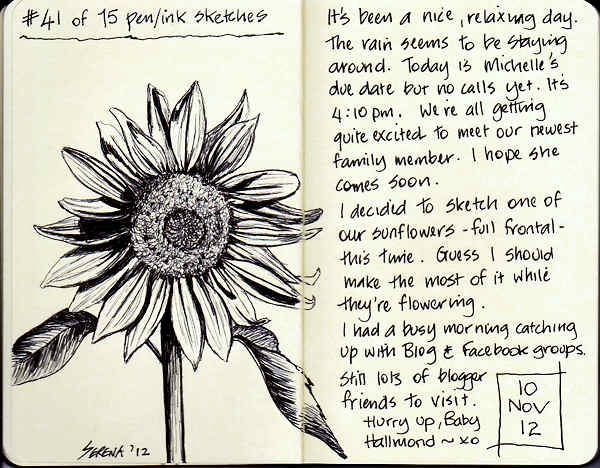 #41 of 75 pen/ink sketches
SERENA '12
It's been a nice, relaxing day.
The rain seems to be staying
around. Today is Michelle's
due date but no calls yet. It's
4:10pm. We're all getting
quite excited to meet our newest
family member. I hope she
comes soon.
I decided to sketch one of
our sunflowers - full frontal -
this time. Guess I should
make the most of it while
they're flowering.
I had a busy morning catching
up with Blog & Facebook groups.
Still lots of blogger
friends to visit.
Hurry up, Baby
Hallmond ~ xo
10
NOV
12